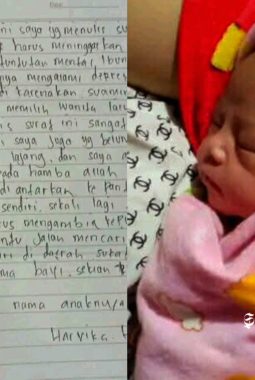 ini saya yg menulis su
harus meninggalkan
tuntutan mental ibun
nya mengalami depres
di karenakan suamin
memilih wanita lain
is surat ini sangat
i saya juga yg belum
lajang, dan saya
ada hamba allah
di antarkan ke pan
sendiri, sekali lagi
us mengambil kep
ntu jalan mencari
ri di daerah
ma bayi, sekian
nama anaknya
Harvika